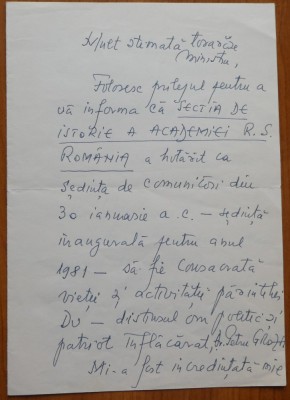 Mult stimată tovarășe
ministru,
Folosesc prilejul pentru a
vă informa că SECȚIA DE
ISTORIE A ACADEMIEI R. S.
ROMÂNIA a hotărît ca
ședința de comunicări din
30 ianuarie a.c. – ședință
inaugurală pentru anul
1981 – să fie consacrată
vieții și activității părintelui
Dv – distinsul om politic și
patriot înflăcărat, Dr. Petru Groza.
Mi-a fost încredințată mie